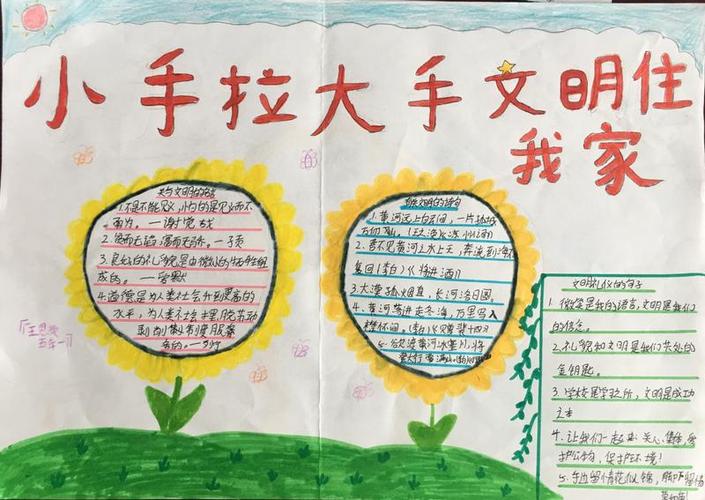 小手拉大手文明住
我家
关于文明的名言
1.不是不能见义,怕的是见义而不
而为。—谢觉哉
2.贫而无谄,富而无骄。—子贡
3.良好的礼貌是由微小的牺牲组
成的。—爱默
4.道德是为人类社会升到更高的
水平,为人类社会摆脱劳动
剥削制制度服务
务的。—列宁
王
五年一
文明的诗句
1.黄河远上白云间,一片孤城
万仞山。(王之涣《凉州词》)
2.君不见黄河之水上天,奔流到海不
复回(李白)《将进酒》
3.大漠孤烟直,长河落日圆
4.黄河落进走东海,万里写入
襟怀间。(李白《赠裴十四》)
5.欲渡黄河冰塞川,将
登太行雪满山
文明礼仪的句子
1.微笑是我的语言,文明是我们
的信念。
2.礼貌和文明是我们共处的
金钥匙。
3.学校是学习之所,文明是成功
之本
4.让我们一起来关心集体,爱
护公物,保护环境!
5.手边留情花似锦,脚下留情
草如茵!